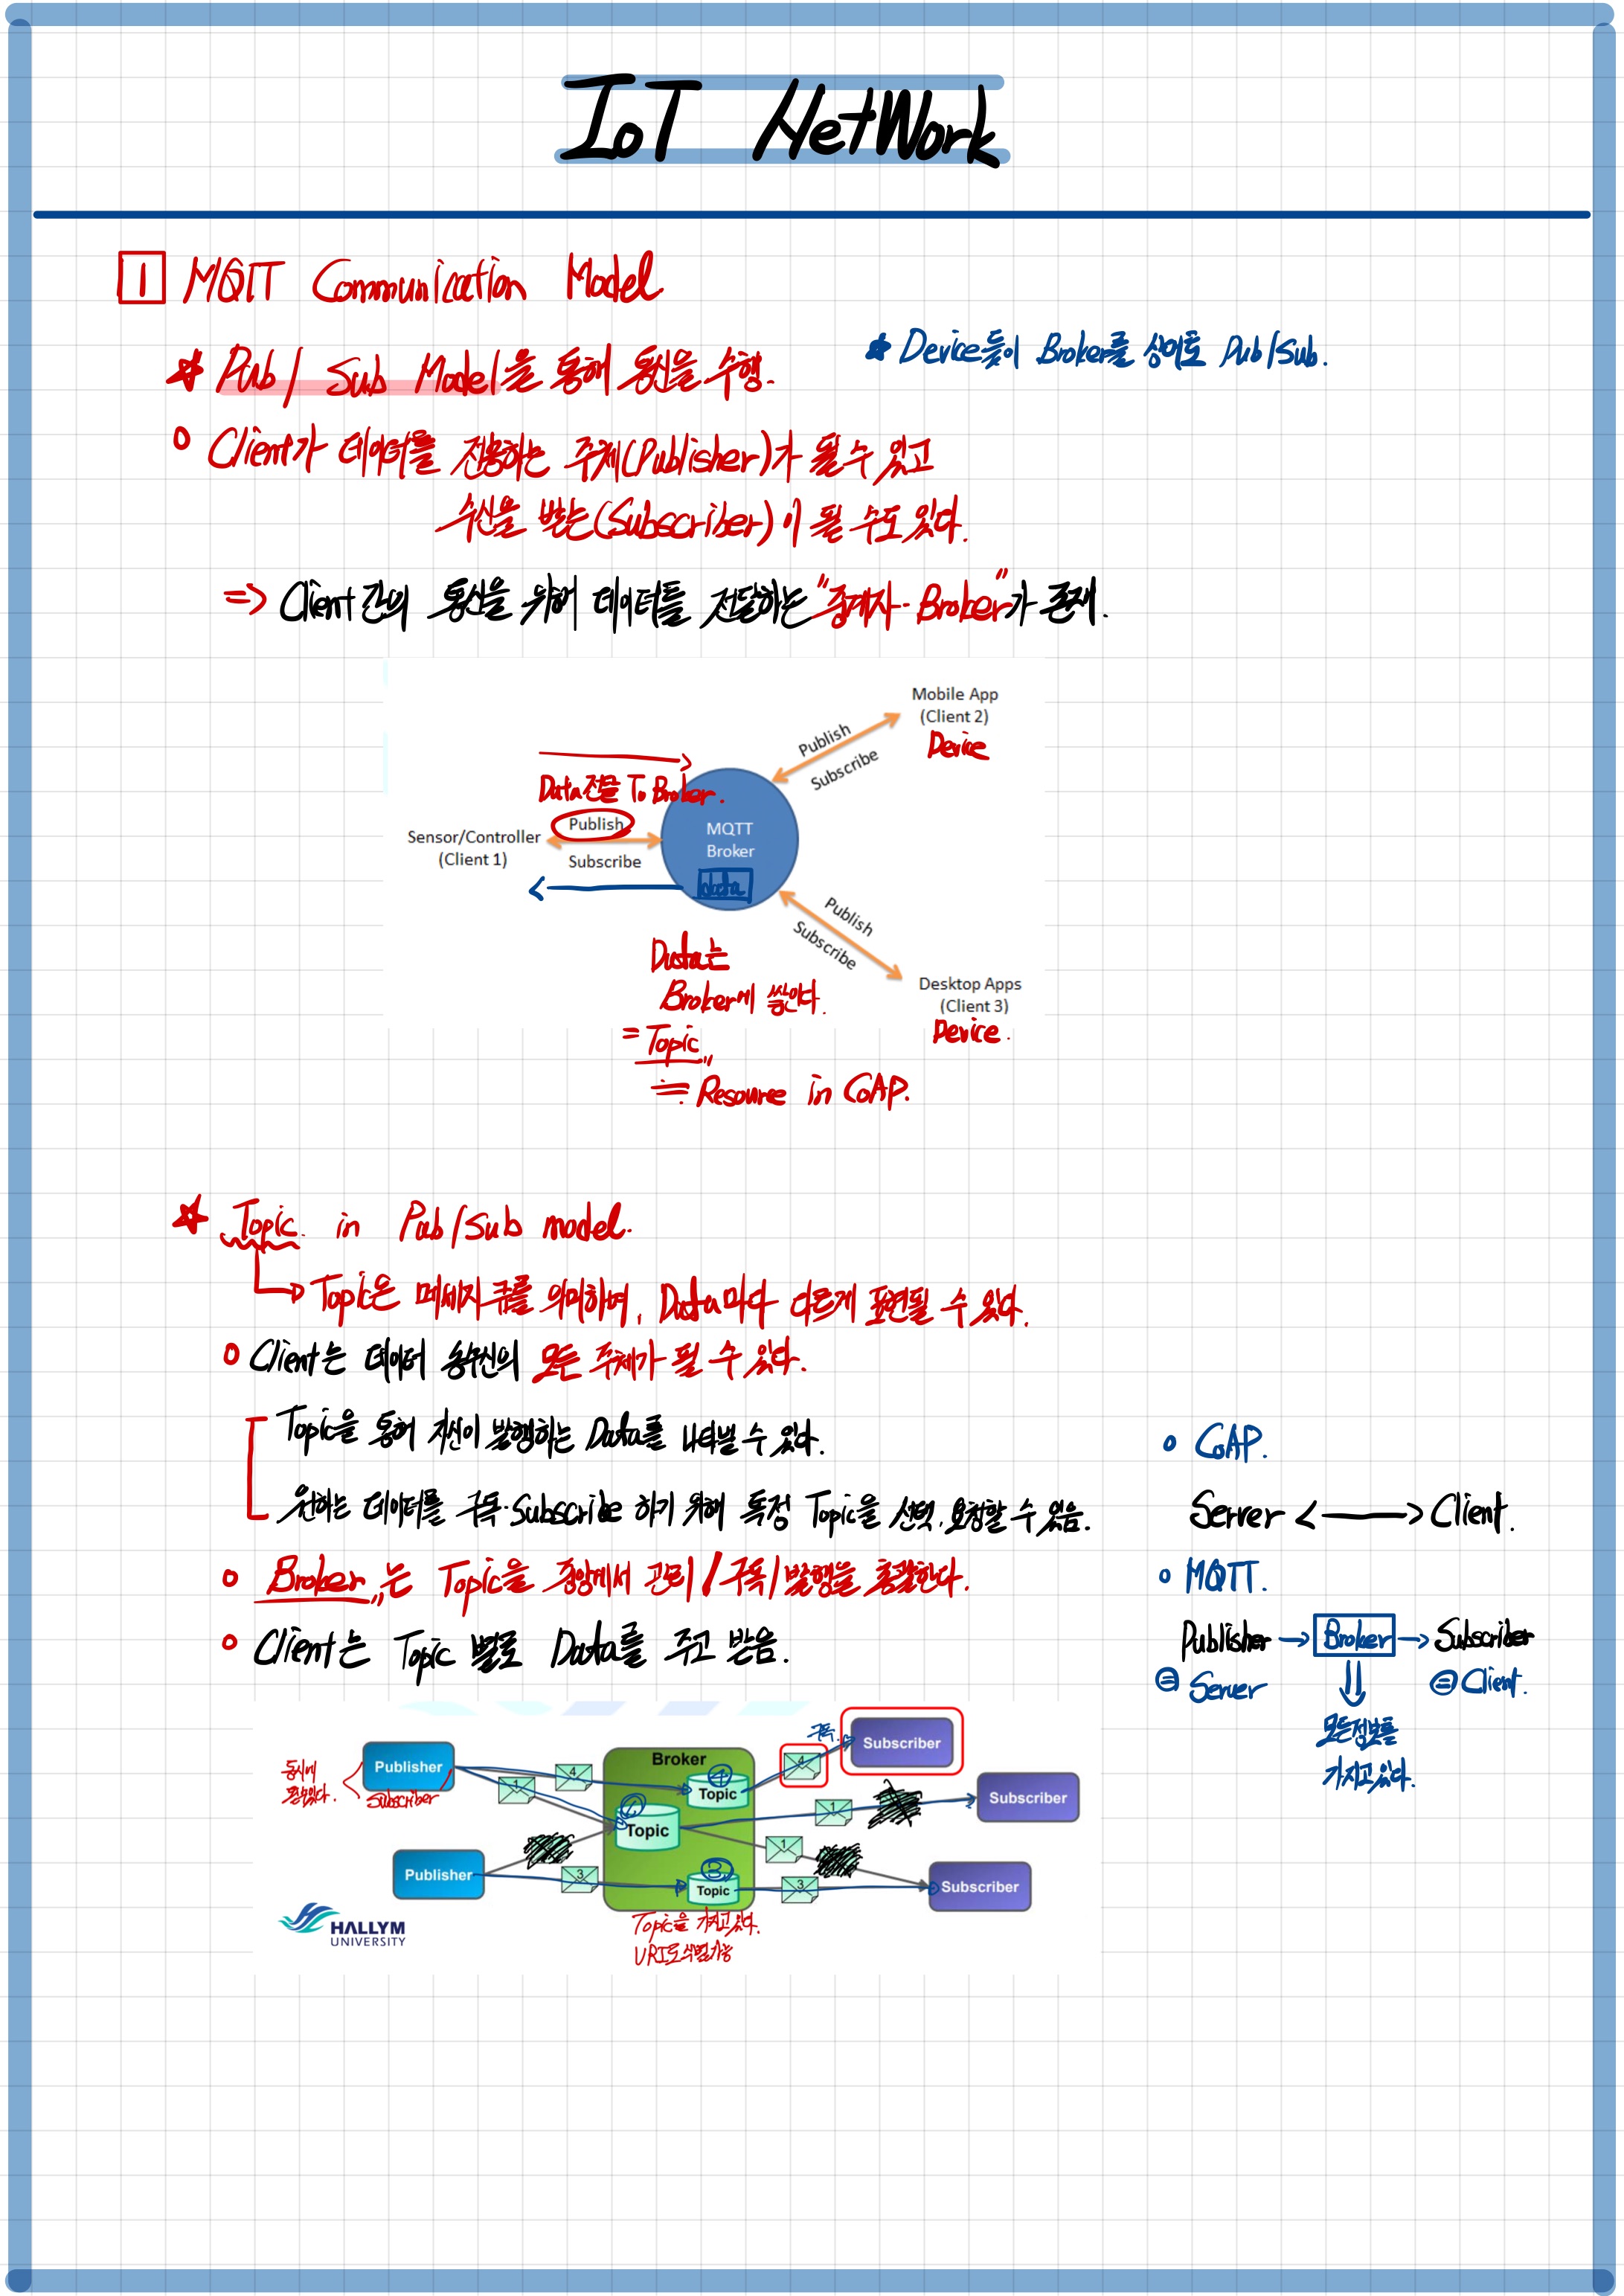 IoT NetWork
1 MQTT Communication Model
☆ Pub / Sub Model을 통해 통신을 수행.
☆ Device들이 Broker를 상대로 Pub/Sub.
Client가 데이터를 전송하는 주체(Publisher)가 될 수 있고
수신을 받는(Subscriber)이 될 수도 있다.
=> Client간의 통신을 위해 데이터를 전달하는 "중계자·Broker"가 존재.
Mobile App
(Client 2)
Device
Publish
Subscribe
Data전을 To Broker.
Publish
Sensor/Controller
(Client 1)
Subscribe
MQTT
Broker
data
Publish
Subscribe
Desktop Apps
(Client 3)
Device.
Data는
Broker에 쌓인다.
= Topic
≒ Resource in CoAP.
☆ Topic in Pub/Sub model.
Topic은 메세지 큐를 의미하며, Data마다 다르게 표현될 수 있다.
Client는 데이터 송수신의 모든 주체가 될 수 있다.
Topic을 통해 자신이 발행하는 Data를 나타낼 수 있다.
원하는 데이터를 구독·Subscribe 하기 위해 특정 Topic을 선택, 요청할 수 있음.
Broker,,는 Topic을 중앙에서 관리/구독/발행을 총괄한다.
Client는 Topic 별로 Data를 주고 받음.
CoAP.
Server <—> Client.
MQTT.
Publisher → Broker → Subscriber
= Server
= Client.
모든정보를
가지고 있다.
동시에
될수있다.
Publisher
Subscriber
Publisher
Broker
4
1
3
Topic
Topic
Topic
4
1
3
구독.
4
1
1
3
Subscriber
Subscriber
Subscriber
Topic을 가지고 있다.
URI로 식별가능
HALLYM
UNIVERSITY